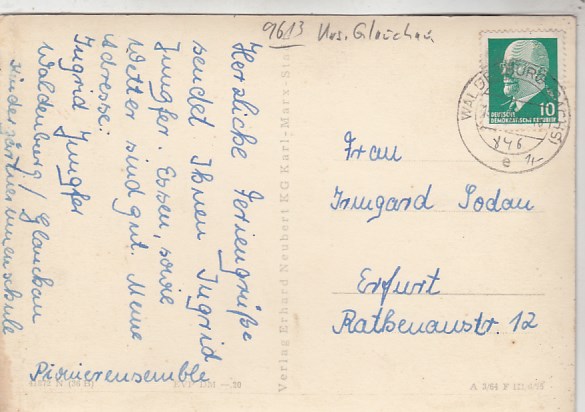 9613 Krs. Glauchau
Herzliche Feriengrüße
sendet Ihnen Ingrid
Jungfer. Essen, sowie
Wetter sind gut. Meine
Adresse:
Ingrid Jungfer
Waldenburg / Glauchau
Kindergärtnerinnenschule
Pionierensemble
Verlag Erhard Neubert KG Karl-Marx-Sta
10
DEUTSCHE
DEMOKRATISCHE REPUBLIK
WALDENBURG (SACHS)
e
Frau
Irmgard Sodau
Erfurt
Rathenaustr. 12
EVP DM -.20